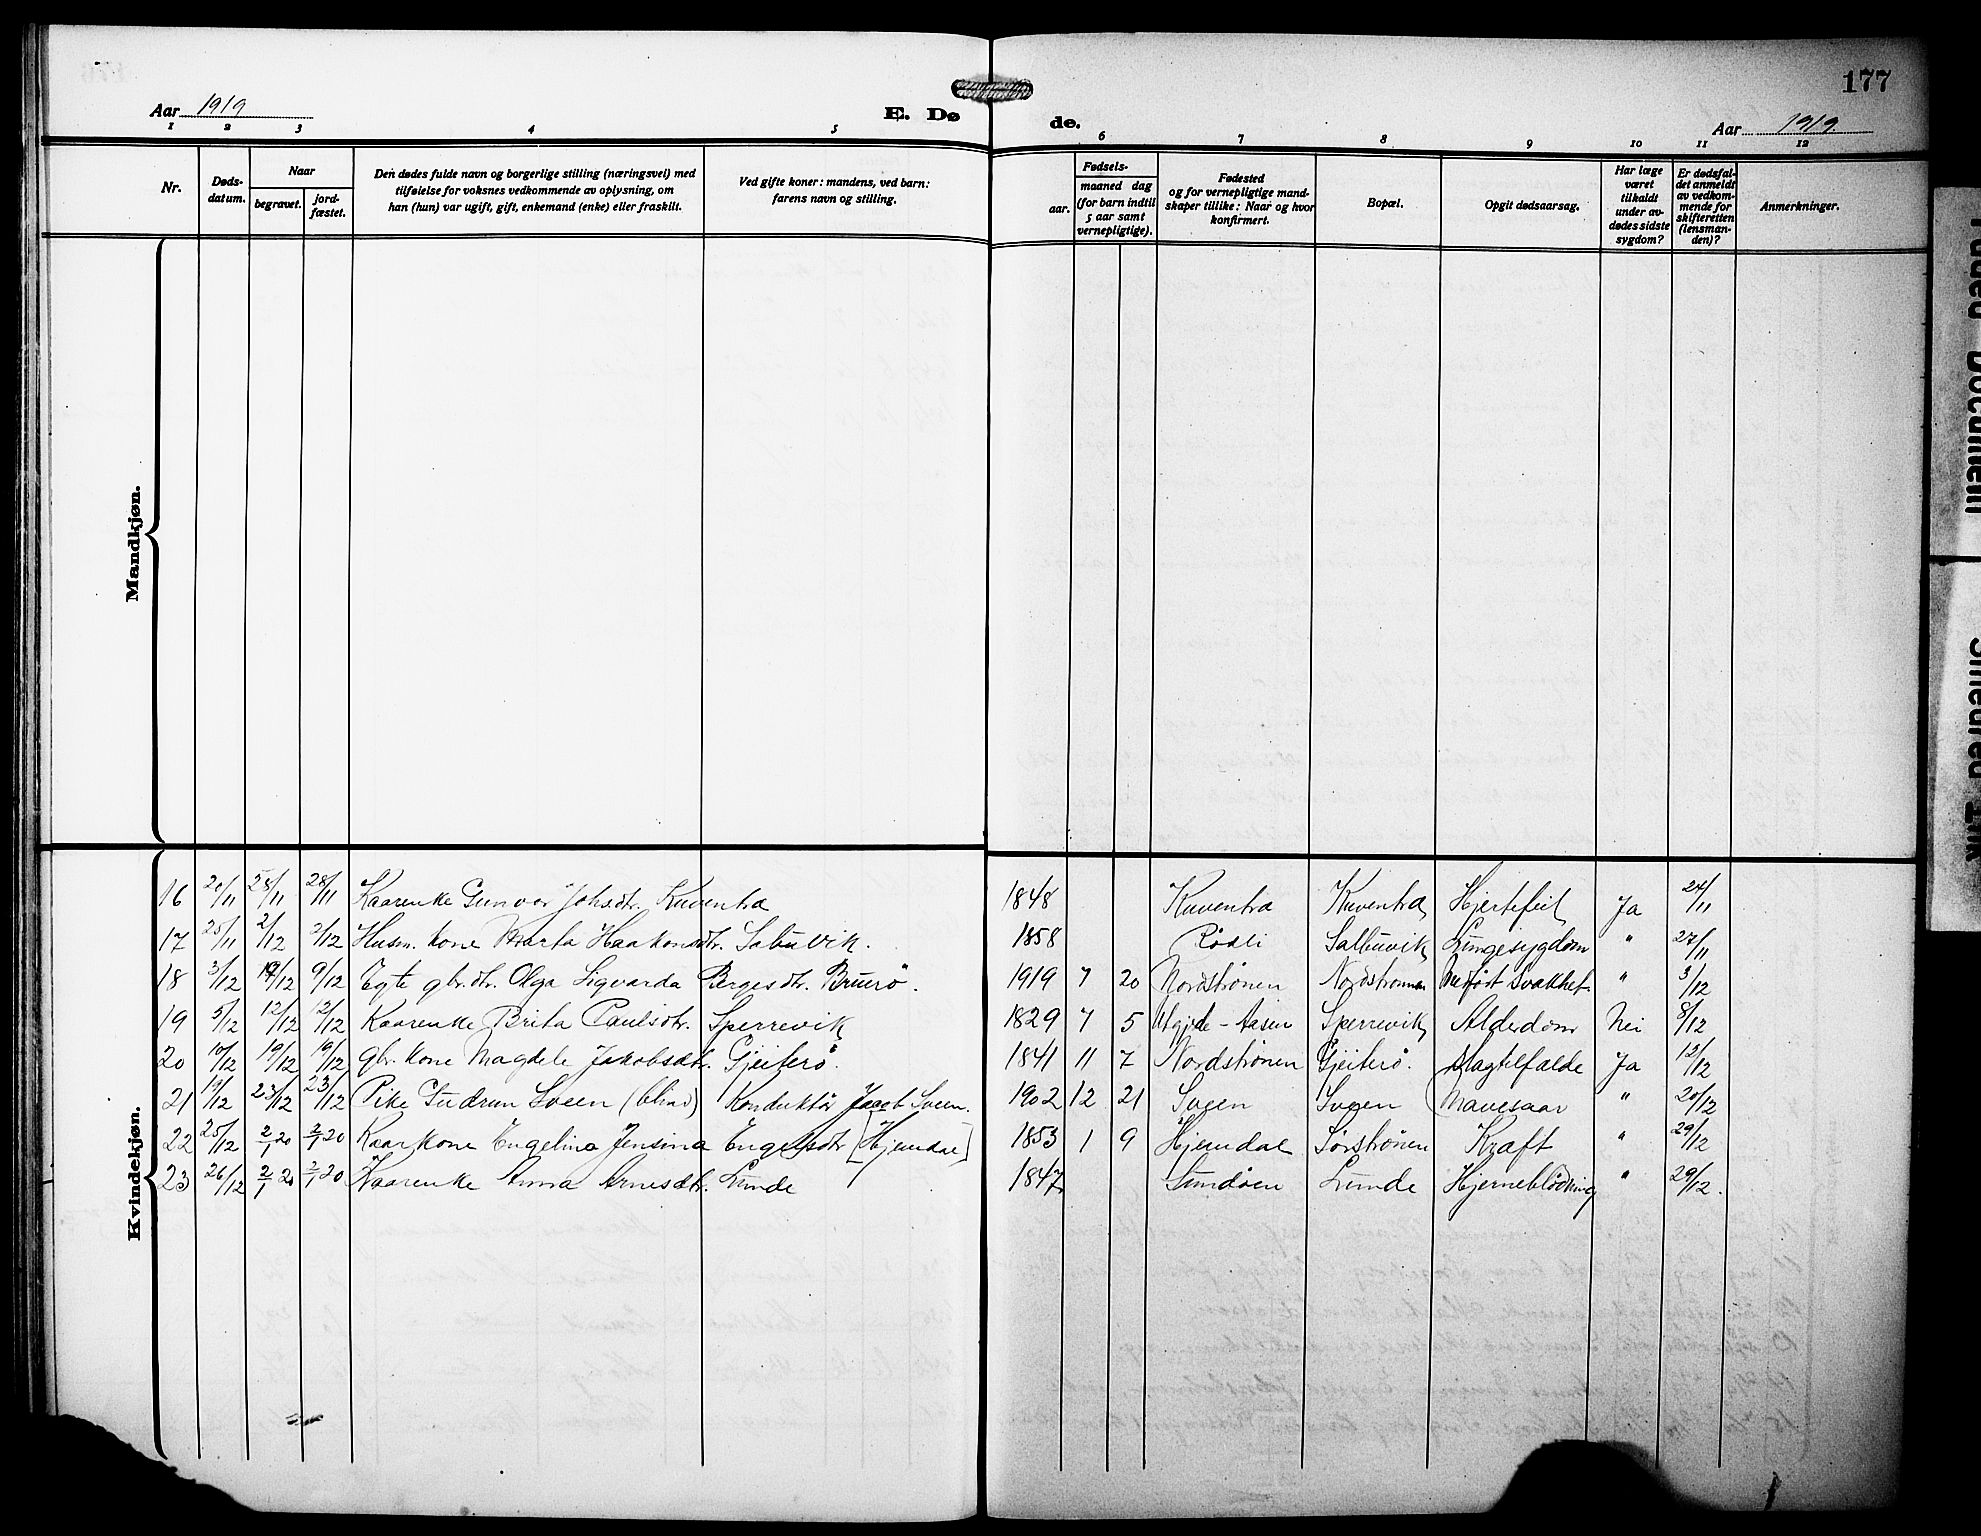 177
Aar 1919
E. Dø
de.
Aar 1919.
1 2 3 4 5 6 7 8 9 10 11 12
Nr.
Døds-
datum.
Naar
begravet.
jord-
fæstet.
Den dødes fulde navn og borgerlige stilling (næringsvei) med
tilføielse for voksnes vedkommende av oplysning, om
han (hun) var ugift, gift, enkemand (enke) eller fraskilt.
Ved gifte koner: mandens, ved barn:
farens navn og stilling.
Fødsels-
aar.
maaned dag
(for barn indtil
5 aar samt
vernepligtige).
Fødested
og for vernepligtige mand-
skaper tillike: Naar og hvor
konfirmert.
Bopæl.
Opgit dødsaarsag.
Har læge
været
tilkaldt
under av-
dødes sidste
sygdom?
Er dødsfal-
det anmeldt
av vedkom-
mende for
skifteretten
(lensman-
den)?
Anmerkninger.
Mandkjøn.
Kvindekjøn.
16 20/11 28/11 28/11 Kaarenke Gunvor Johsdtr. Kuventræ 1848 Kuventræ Kuventræ Hjertefeil Ja 24/11
17 25/11 2/12 2/12 Husm. kone Marta Haakonsdtr. Salbuvik. 1858 Rødli Salbuvik Lungesygdom " 27/11
18 3/12 9/12 9/12 Egte gbr.dtr. Olga Sigvarda Bergesdtr. Bruerö. 1919 7 20 Nordströnen Nordströnen Medfödt svakhet. " 3/12
19 5/12 12/12 12/12 Kaarenke Brita Paulsdtr. Sperrevik 1829 7 5 Utgjerde-Aasen Sperrevik Alderdom Nei 8/12
20 10/12 19/12 19/12 Gbr. kone Magdele Jakobsdtr. Gjeiterö. 1841 11 7 Nordströnen Gjeiterö. Slagtilfælde Ja 12/12
21 19/12 23/12 23/12 Pike Gudrun Sveen (blind) Konduktör Jacob Sveen. 1902 12 21 Sveen Sveen Mavesaar " 20/12
22 25/12 2/1 20 2/1 20 Kaarkone Engelina Jensina Engelsdtr [Hjemdal] 1853 1 9 Hjemdal Sörströnen Kræft " 29/12
23 26/12 2/1 20 2/1 20 Kaarenke Anna Arnesdtr. Lunde 1847 Sundöen Lunde Hjerneblödning " 29/12.